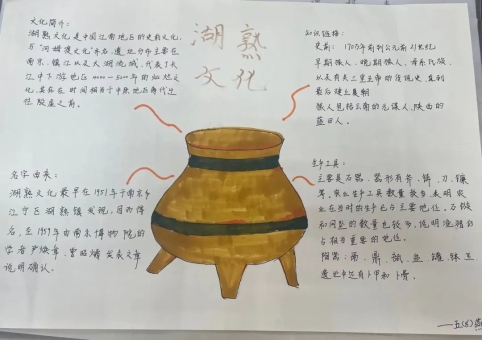 湖熟
文化
文化简介：
湖熟文化是中国江南地区的史前文化,
与"河姆渡文化"齐名,遗址分布主要在
南京、镇江以及太湖流域,代表了长
江中下游地区4000—5000年的灿烂文
化,其存在时间相当于中原地区商代至
知识链接：
史前：170万年前到公元前21世纪
早期猿人、晚期猿人、母系氏族、
以及有关三皇五帝的传说史,直到
最后建立夏朝
猿人包括云南的元谋人,陕西的
蓝田人。
名字由来：
湖熟文化最早在1951年于南京市
江宁区湖熟镇发现,因而得
名,至1959年由南京博物院的
学者尹焕章、曾昭燏发表文章
说明确认。
生产工具：
主要是石器、器形有斧、锛、刀、镰
等,农业生产工具数量较多,表明农
业在当时的生产已占主要地位。石镞
和网坠的数量也较多,说明渔猎仍
占相当重要的地位。
陶器：鬲、鼎、甗、盆、罐、钵、豆
遗址中还有卜甲和卜骨。